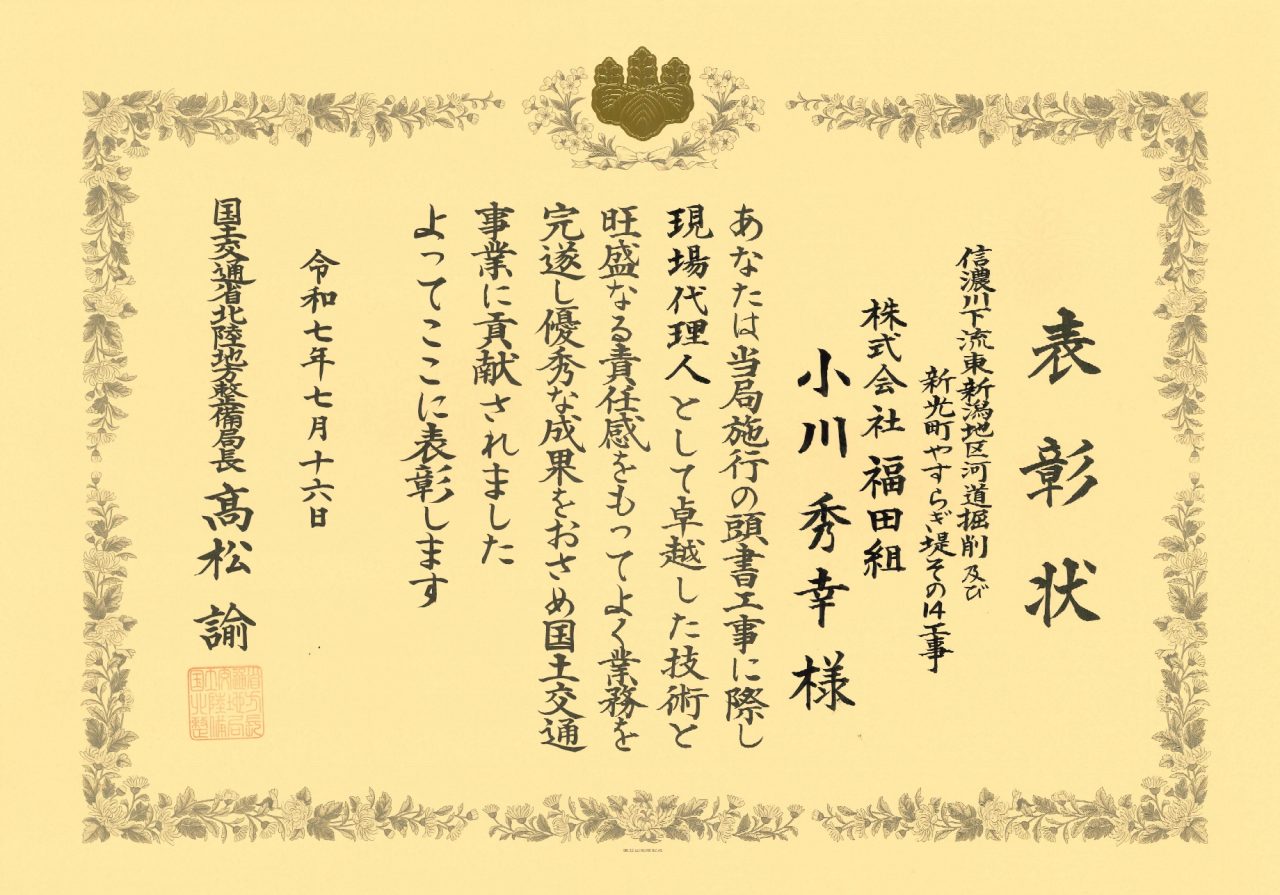 表彰状
信濃川下流東新潟地区河道掘削及び
新光町やすらぎ堤その14工事
株式会社 福田組
小川 秀幸 様
あなたは当局施行の頭書工事に際し
現場代理人として卓越した技術と
旺盛なる責任感をもってよく業務を
完遂し優秀な成果をおさめ国土交通
事業に貢献されました
よってここに表彰します
令和七年七月十六日
国土交通省北陸地方整備局長 髙松 諭